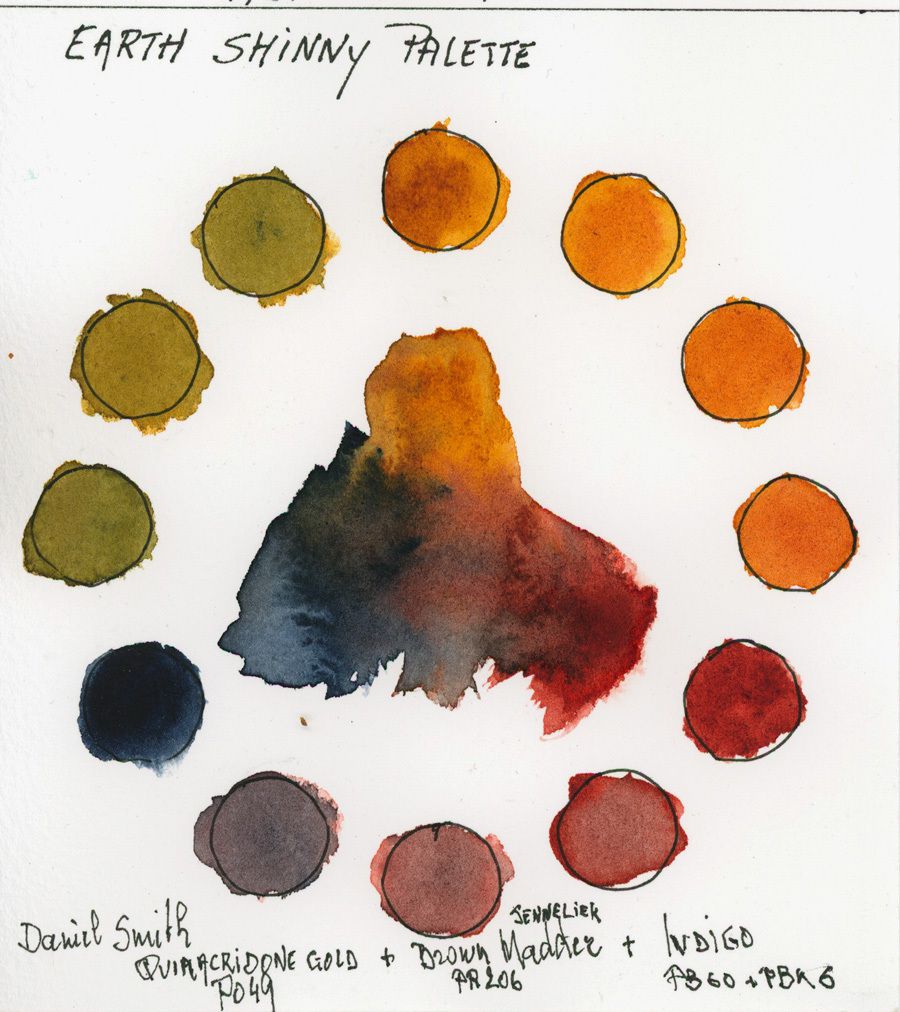 EARTH SHiNNy PALETTE
SENNELIER
Daniel Smith
QUINACRIDONE GOLD + Brown Madder + INDIGO
PO49 PR206 PB60 + PBK6